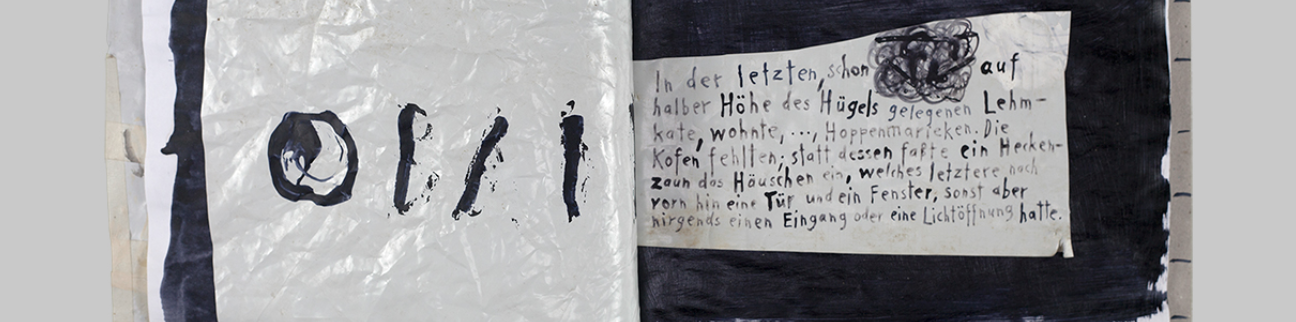 In der letzten, schon auf
halber Höhe des Hügels gelegenen Lehm-
kate, wohnte, ..., Hoppenmarieken. Die
Kofen fehlten; statt dessen faßte ein Hecken-
zaun das Häuschen ein, welches letztere nach
vorn hin eine Tür und ein Fenster, sonst aber
nirgends einen Eingang oder eine Lichtöffnung hatte.